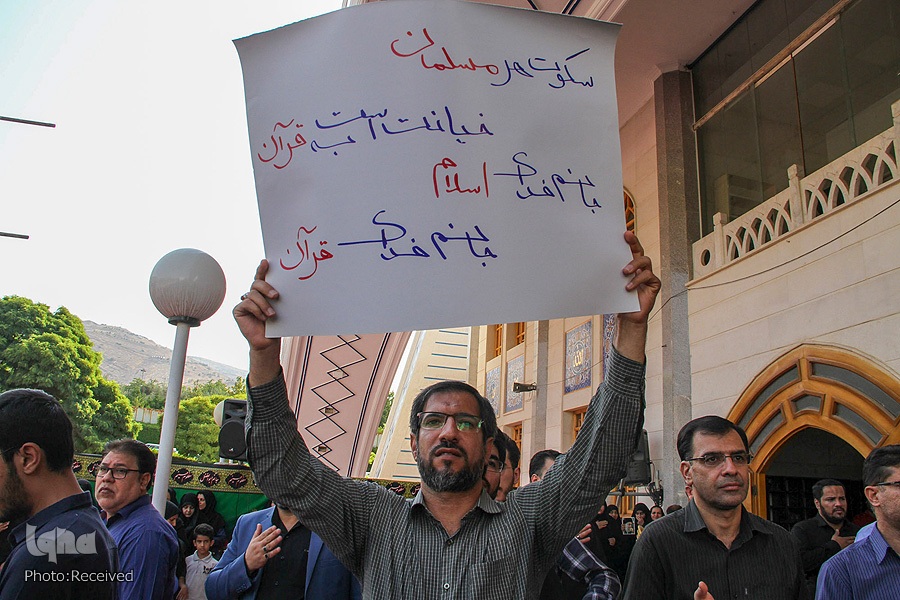 سکوت هر مسلمان
خیانت است به قرآن
جانم فدای اسلام
جانم فدای قرآن
iqna
Photo:Received